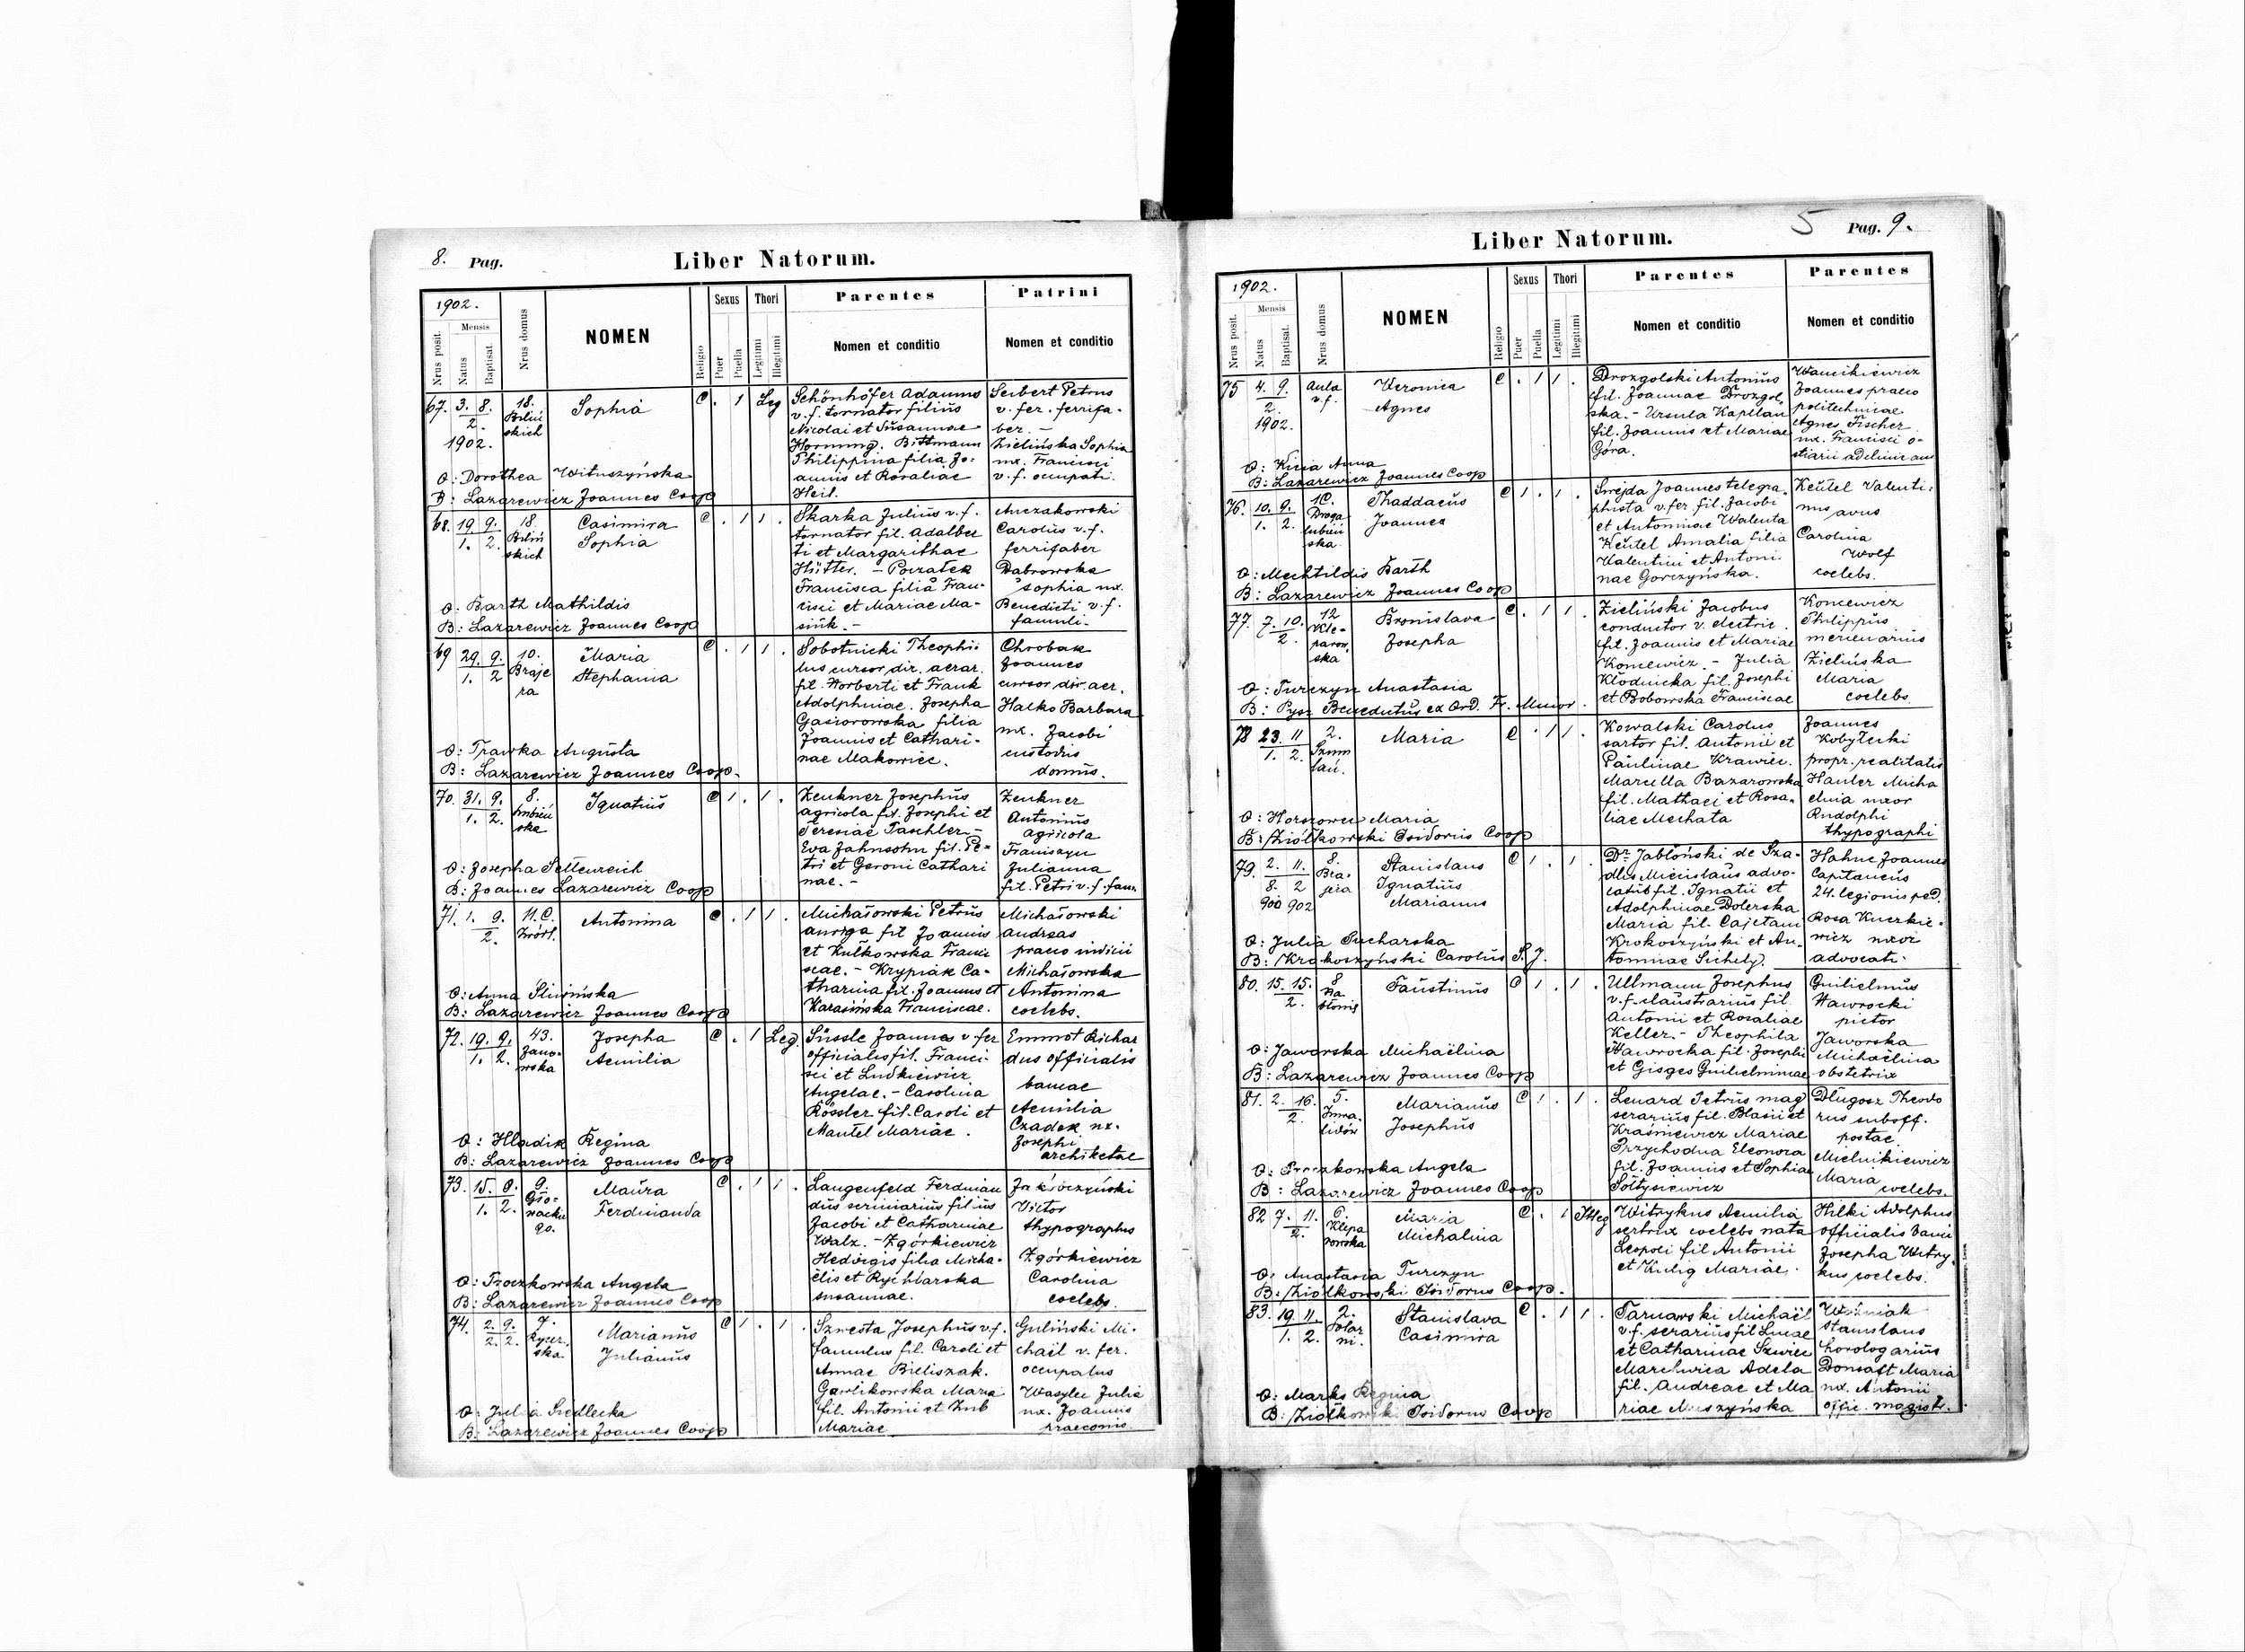 8. Pag.
Liber Natorum.
1902.
Nrus posit.
Mensis
Natus
Baptisat.
Nrus domus
NOMEN
Religio
Sexus
Puer
Puella
Thori
Legitimi
Illegitimi
Parentes
Nomen et conditio
Patrini
Nomen et conditio
67. 3. 8. 18.
2.
1902.
skich
Sophia
C . 1 Leg
Schönhöfer Adamus
v.f. tornator filius
Nicolai et Susannae
Hornung. Bittmann
Philippina filia Jo-
annis et Rosaliae
Heil.
Seibert Petrus
v. fer. ferrifa-
ber. -
Zielińska Sophia
ux. Francisci
v.f. occupati.
O: Dorothea Wituszyńska
B: Lazarewicz Joannes Coop
68. 19. 9. 18.
1. 2.
skich
Casimira
Sophia
C . 1 1 .
Skarka Julius v.f.
tornator fil. Adalber
ti et Margarithae
Hütter. - Początek
Francisca filia Fran-
cisci et Mariae Ma-
siuk. -
Anczakowski
Carolus v.f.
ferrifaber
Dabrowska
Sophia ux.
Benedicti v.f.
famuli.
O: Barth Mathildis
B: Lazarewicz Joannes Coop
69 29. 9. 10.
1. 2 Braje
ra
Maria
Stephania
C . 1 1 .
Sobotnicki Theophi-
lus cursor dir. aerar.
fil. Norberti et Frank
Adolphinae. Josepha
Gasiorowska filia
Joannis et Cathari-
nae Makowiec.
Chrobak
Joannes
cursor dir. aer.
Halko Barbara
ux. Jacobi
custodis
domus.
O: Trawka Augusta
B: Lazarewicz Joannes Coop.
70. 31. 9. 8.
1. 2.
ska
Ignatius
C 1 . 1 .
Zeukner Josephus
agricola fil. Josephi et
Teresiae Taschler -
Eva Jahnsohn fil. Pe-
tri et Geroni Cathari
nae. -
Zeukner
Antonius
agricola
Julianna
fil. Petri v.f. fam.
O: Josepha Settenreich
B: Joannes Lazarewicz Coop
71. 1. 9. 11.C.
2. Źródł.
Antonina
C . 1 1 .
Michałowski Petrus
auriga fil Joannis
et Kulkowska Franci
scae. - Krypiak Ca-
tharina fil. Joannis et
Karasińska Franciscae.
Michałowski
Andreas
praeco iudicii
Michałowska
Antonina
coelebs.
O: Anna Śliwińska
B: Lazarewicz Joannes Coop
72. 19. 9. 43.
1. 2. Jano-
wska
Josepha
Aemilia
C . 1 Leg.
Süssle Joannes v. fer
officialis fil. Franci-
sci et Ludkiewicz
Angelae. - Carolina
Rössler fil. Caroli et
Mantel Mariae.
Emmot Richar
dus officialis
bancae
Aemilia
Czadek ux.
Josephi
architectae
O: Hladik Regina
B: Lazarewicz Joannes Coop
73. 15. 8. 9.
1. 2.
go.
Maura
Ferdinanda
C . 1 1 .
Langenfeld Ferdinan
dus scriniarius filius
Jacobi et Catharinae
Walz. - Zgórkiewicz
Hedvigis filia Micha-
ëlis et Rychlarska
Susannae.
Victor
thypographus
Zgórkiewicz
Carolina
coelebs.
O: Troczkowska Angela
B: Lazarewicz Joannes Coop
74. 2. 9. 7.
2. 2. Rycer-
ska.
Marianus
Julianus
C 1 . 1 .
Szwesta Josephus v.f.
famulus fil. Caroli et
Annae Bieliszak.
Gawlikowska Maria
fil. Antonii et Zub
Mariae
Guliński Mi-
chaël v. fer.
occupatus
Wasylec Julia
ux. Joannis
praeconis
O: Julia Siedlecka
B: Lazarewicz Joannes Coop
5
Pag. 9.
Liber Natorum.
1902.
Nrus posit.
Mensis
Natus
Baptisat.
Nrus domus
NOMEN
Religio
Sexus
Puer
Puella
Thori
Legitimi
Illegitimi
Parentes
Nomen et conditio
Parentes
Nomen et conditio
75 4. 9. Aula
2. v.f.
1902.
Veronica
Agnes
C . 1 1 .
Drozgolski Antonius
fil. Joannae Drozgol-
ska. - Ursula Kapllan
fil. Joannis et Mariae
Góra.
Wancikiewicz
Joannes praeco
politechnicae
Agnes Fischer
ux. Francisci o-
O: Kicia Anna
B: Lazarewicz Joannes Coop
76. 10. 9. 1C.
1. 2. Droga
lubień
ska.
Thaddaeus
Joannes
C 1 . 1 .
Swejda Joannes telegra-
phista v. fer fil. Jacobi
et Antoninae Walenta
Keütel Amalia filia
Valentini et Antoni-
nae Gorczyńska.
Keütel Valenti-
nus avus
Carolina
Wolf
coelebs.
O: Mechtildis Barth
B: Lazarewicz Joannes Coop
77. 7. 10. 12
2. Kle-
parow
ska
Bronislava
Josepha
C . 1 1 .
Zieliński Jacobus
conductor v. electric.
fil. Joannis et Mariae
Koncewicz. - Julia
Kłodnicka fil. Josephi
et Bobowska Franciscae
Koncewicz
Philippus
mercenarius
Zielińska
Maria
coelebs.
O: Turczyn Anastasia
B: Pysz Benedictus ex Ord. Fr. Minor.
78 23. 11 2.
1. 2.
Maria
C . 1 1 .
Kowalski Carolus
sartor fil. Antonii et
Paulinae Krawiec.
Marcella Bazarowska
fil. Mathaei et Rosa-
liae Mechata
Joannes
Kobyłecki
propr. realitatis
Hanler Micha
elina uxor
Rudolphi
thypographi
O: Horszowec Maria
B: Ziółkowski Isidorus Coop
79. 2. 11. 8.
8. 2 Bra-
900 902 jera
Stanislaus
Ignatius
Marianus
C 1 . 1 .
Dr. Jabłoński de Sza-
dlus Mieciślaus advo-
catus fil. Ignatii et
Adolphinae Dolerska
Maria fil. Cajetani
Krokoszyński et An-
toninae Sichely.
Hahne Joannes
Capitaneus
24. legionis ped.
Rosa Kuczkie-
wicz uxor
advocati.
O: Julia Sucharska
B: Krokoszyński Carolus S.J.
80. 15. 15. 8
2. Na
błonie
Faustinus
C 1 . 1 .
Ullmann Josephus
v.f. claustrarius fil.
Antonii et Rosaliae
Keller. - Theophila
Nawrocka fil. Josephi
et Gisges Guilielminae
Guilielmus
Nawrocki
pictor
Jaworska
Michaëlina
obstetrix
O: Jaworska Michaëlina
B: Lazarewicz Joannes Coop
81. 2. 16. 5.
2. Inwa-
lidów
Marianus
Josephus
C 1 . 1 .
Lenard Petrus mag
serarius fil. Blasii et
Kraśniewicz Mariae
Przychodna Eleonora
fil. Joannis et Sophiae
Sołtysiewicz
Długosz Theodo
rus suboff.
postae
Mielnikiewicz
Maria
coelebs.
O: Troczkowska Angela
B: Lazarewicz Joannes Coop
82 7. 11. 6.
2. Klepa
rowska
Maria
Michalina
C . 1 Illeg
Witrykus Aemilia
sertrix coelebs nata
Leopoli fil Antonii
et Kulig Mariae.
Hilki Adolphus
officialis banci
Josepha Witry-
kus coelebs.
O: Anastasia Turczyn
B: Ziółkowski Isidorus Coop.
83. 19. 11. 2.
1. 2. Solar
ni.
Stanislava
Casimira
C . 1 1 .
Tarnawski Michaël
v.f. serarius fil Lucae
et Catharinae Szwiec
Marchwica Adela
fil. Andreae et Ma
riae Muszyńska
Woźniak
Stanislaus
horologarius
Donsaft Maria
ux. Antonii
offic. magistr.
O: Marks Regina
B: Ziółkowski Isidorus Coop